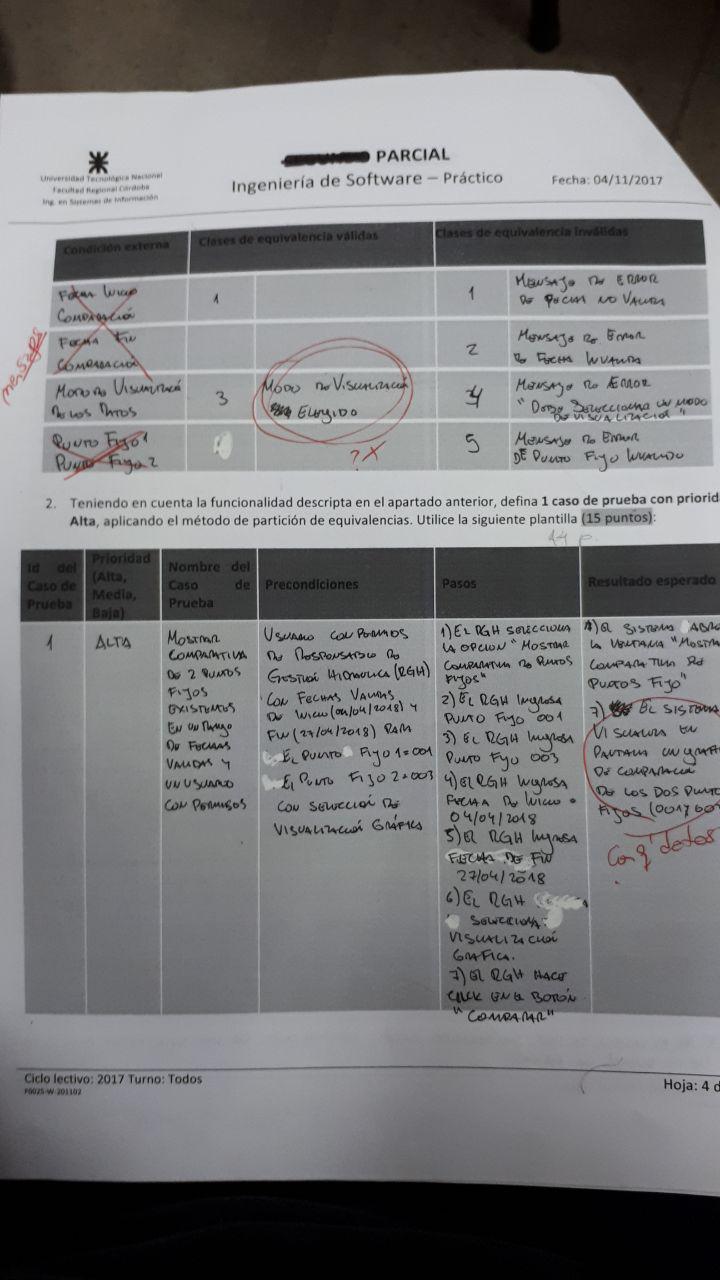 PARCIAL
Universidad Tecnológica Nacional
Facultad Regional Córdoba
Ing. en Sistemas de Información
Ingeniería de Software – Práctico
Fecha: 04/11/2017
Condición externa
Clases de equivalencia válidas
Clases de equivalencia inválidas
FECHA INICIO
COMPARACIÓN
1
1
MENSAJE DE ERROR
DE FECHA NO VALIDA
FECHA FIN
COMPARACIÓN
2
MENSAJE DE ERROR
DE FECHA INVALIDA
mensajes
MODO DE VISUALIZACIÓ
DE LOS DATOS
3
MODO DE VISUALIZACIÓ
ELEGIDO
4
MENSAJE DE ERROR
"DEBE SELECCIONAR UN MODO
DE VISUALIZACIÓN"
PUNTO FIJO 1
PUNTO FIJO 2
? X
5
MENSAJE DE ERROR
DE PUNTO FIJO INVALIDO
2. Teniendo en cuenta la funcionalidad descripta en el apartado anterior, defina 1 caso de prueba con priorid
Alta, aplicando el método de partición de equivalencias. Utilice la siguiente plantilla (15 puntos):
Id del
Caso de
Prueba
Prioridad
(Alta,
Media,
Baja)
Nombre del
Caso de
Prueba
Precondiciones
Pasos
Resultado esperado
1
ALTA
MOSTRAR
COMPARATIVA
DE 2 PUNTOS
FIJOS
EXISTENTES
EN UN RANGO
DE FECHAS
VALIDAS Y
UN USUARIO
CON PERMISOS
USUARIO CON PERMISOS
DE RESPONSABLE DE
GESTIÓN HIDRAULICA (RGH)
CON FECHAS VALIDAS
DE INICIO (04/04/2018) Y
FIN (27/04/2018) PARA
EL PUNTO FIJO 1=001
EL PUNTO FIJO 2=003
CON SELECCIÓN DE
VISUALIZACIÓN GRÁFICA
1) EL RGH SELECCIONA
LA OPCION "MOSTRAR
COMPARATIVA DE PUNTOS
FIJOS"
2) EL RGH INGRESA
PUNTO FIJO 001
3) EL RGH INGRESA
PUNTO FIJO 003
4) EL RGH INGRESA
FECHA DE INICIO
04/04/2018
5) EL RGH INGRESA
FECHA DE FIN
27/04/2018
6) EL RGH
SELECCIONA
VISUALIZACIÓN
GRAFICA.
7) EL RGH HACE
CLICK EN EL BOTÓN
"COMPARAR"
1) EL SISTEMA ABRE
LA VENTANA "MOSTRA
COMPARATIVA DE
PUNTOS FIJO"
7) EL SISTEMA
VISUALIZA EN
PANTALLA UN GRAFI
DE COMPARACIÓN
DE LOS DOS PUNTO
FIJOS (001 Y 00
Con q' datos
Ciclo lectivo: 2017 Turno: Todos
F0025-W-201102
Hoja: 4 d